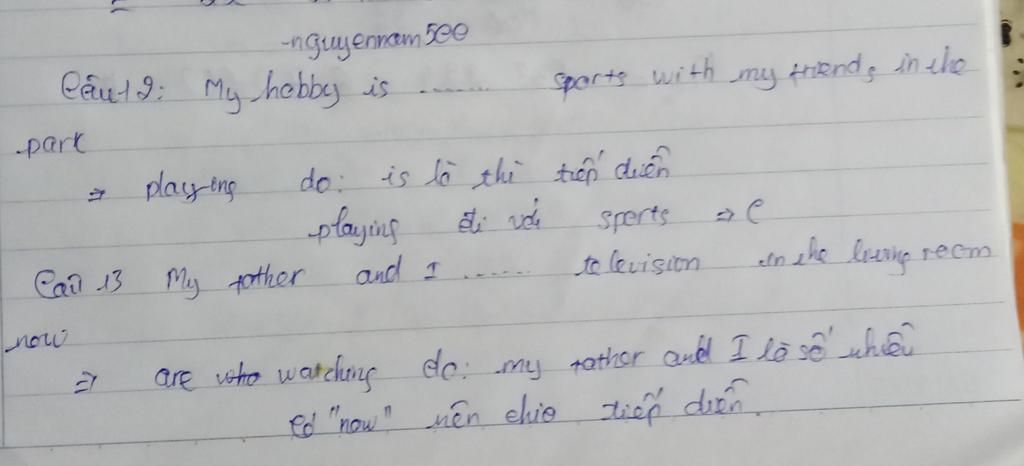 -nguyennam500
Câu 12: My hobby is ........ sports with my friends in the
park
⇒ playing do: is là thì tiếp diễn
playing đi với sports ⇒ C
Câu 13 My father and I ....... television in the living room
now
⇒ are watching do: my father and I là số nhiều
có "now" nên chia tiếp diễn.